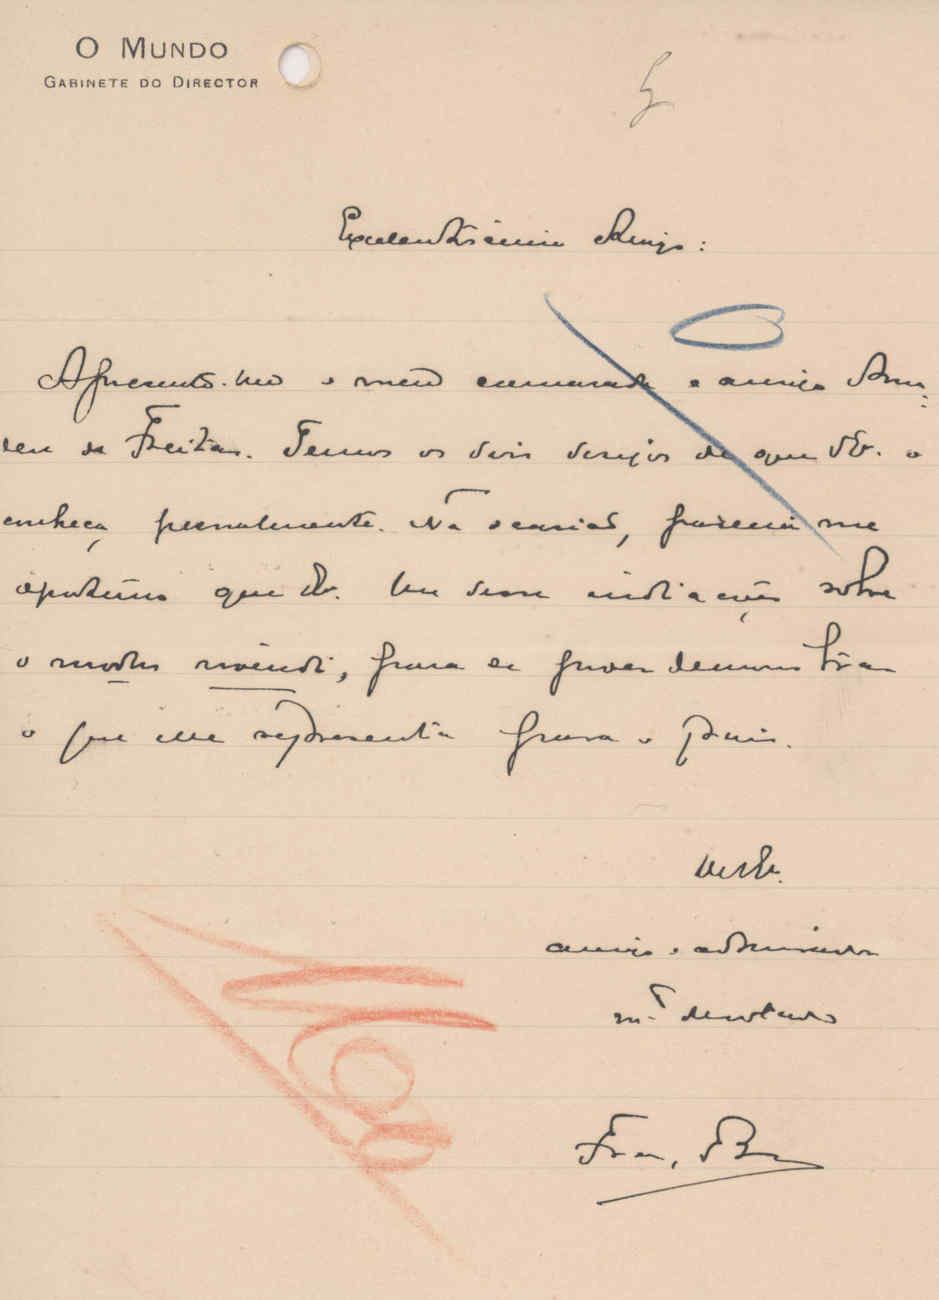 O MUNDO
GABINETE DO DIRECTOR
Excelentíssimo Amigo:
Apresento-lhe o meu camarada e amigo
de Freitas. Temos os dois desejos de que V. o
conheça pessoalmente. Na ocasião, parecia-me
oportuno que V. lhe desse indicações sobre
o modus vivendi, para se poder demonstrar
o que ele representa para o Pais.
amigo e admirador
m.to devotado